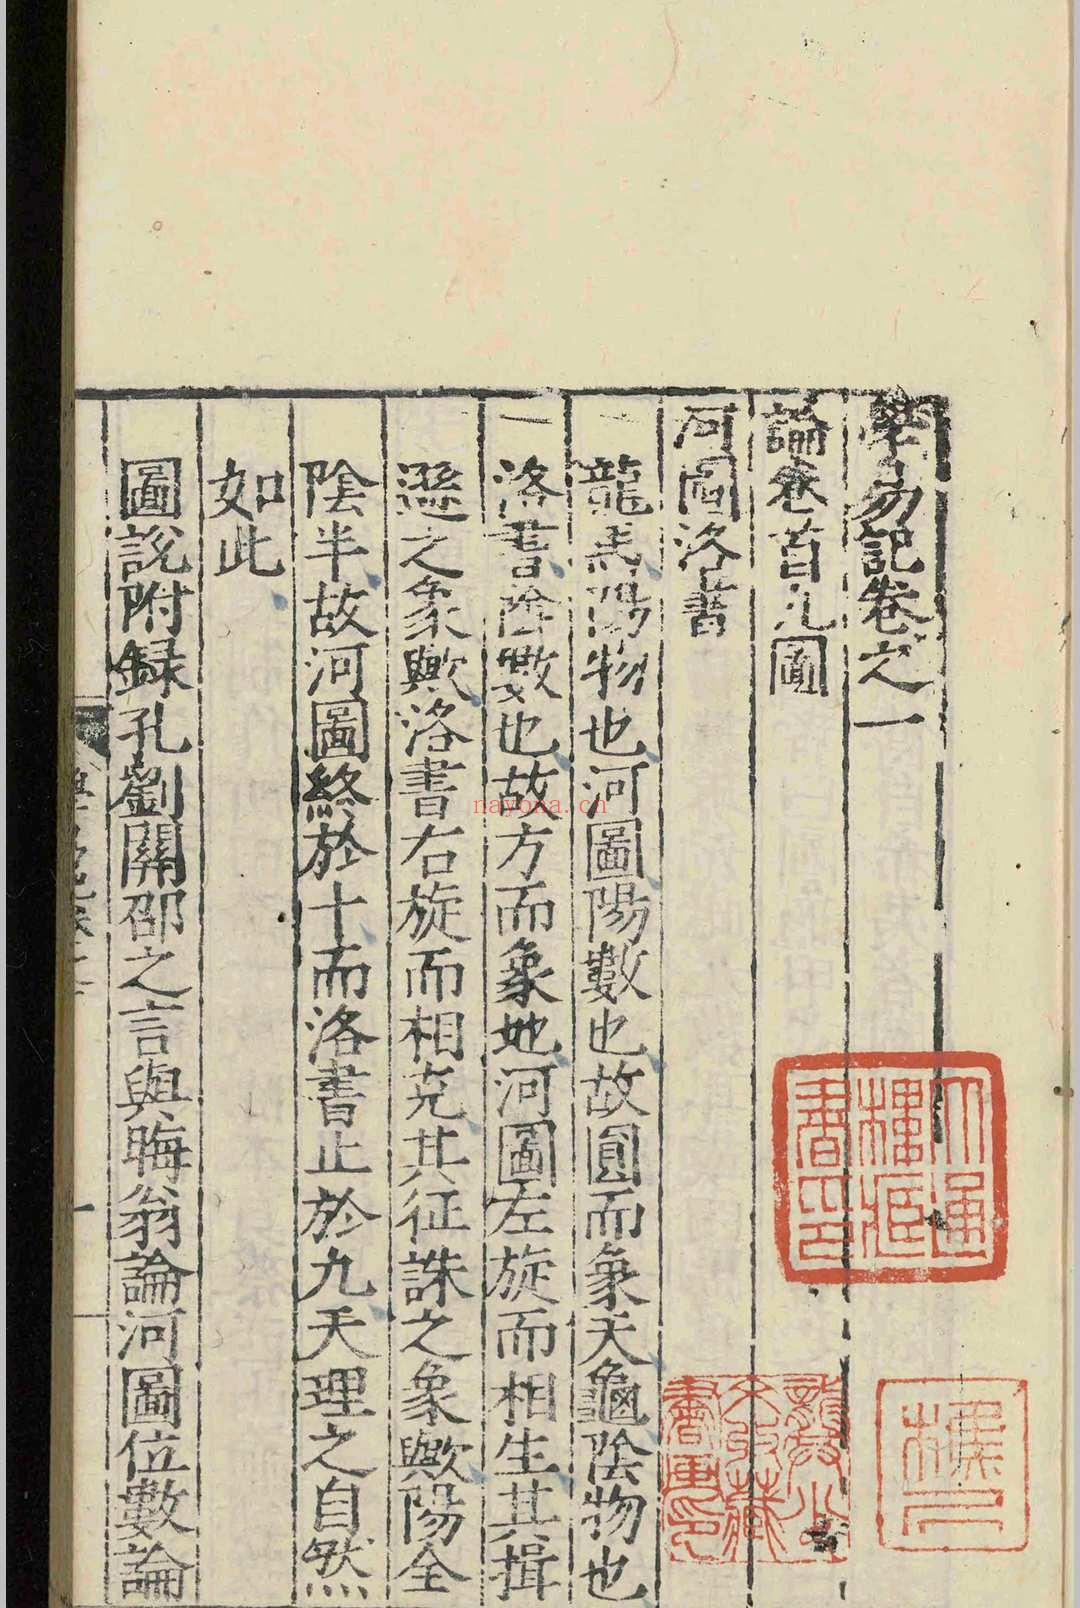 學易記卷之一
論卷首九圖
河圖洛書
一龍馬陽物也河圖陽數也故圓而象天龜陰物也
一洛書陰數也故方而象地河圖左旋而相生其揖
遜之象歟洛書右旋而相克其征誅之象歟陽全
陰半故河圖終於十而洛書止於九天理之自然
如此
圖說附録孔劉關邵之言與晦翁論河圖位數論
學易記卷之一
一
nayona.cn